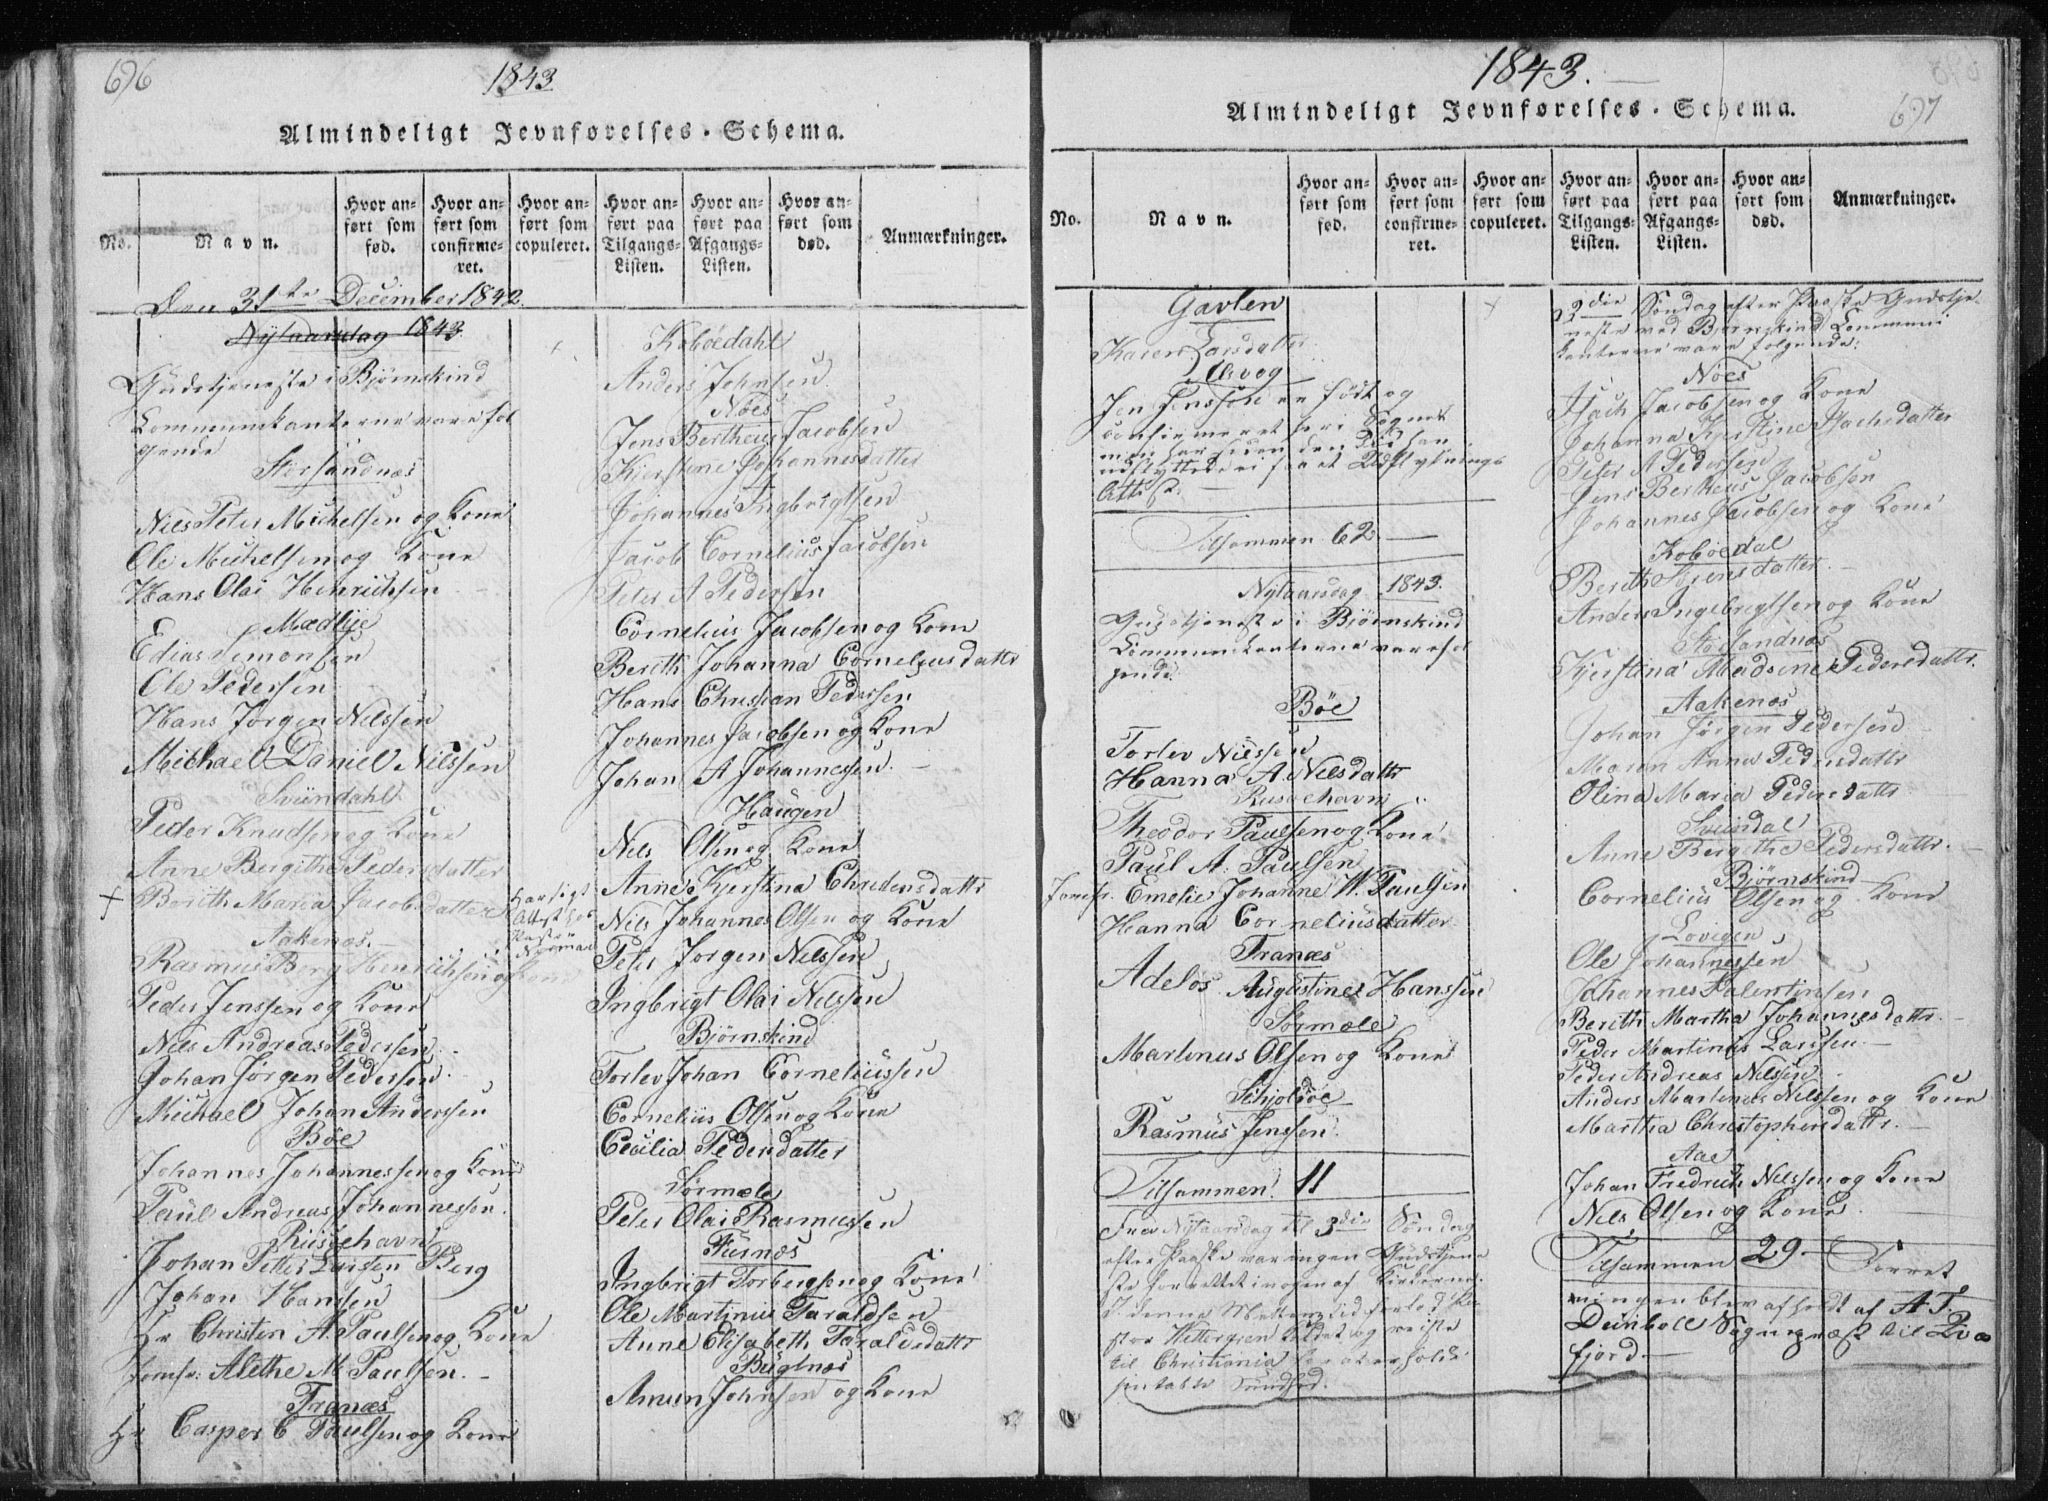 696
1843
Almindeligt Jevnførelses-Schema.
No.
Navn.
Hvor anført som fød.
Hvor anført som confirmeret.
Hvor anført som copuleret.
Hvor anført paa Tilgangs-Listen.
Hvor anført paa Afgangs-Listen.
Hvor anført som død.
Anmærkninger.
Den 31te December 1842.
Nytaarsdag 1843.
Gudstjeneste i Bjørnskind
Communikanterne vare føl
gende
Storsandnæs
Niels Peter Michelsen og Kone
Ole Michelsen og Kone
Hans Olai Henrichsen
Medbye
Edias Simonsen
Ole Pedersen
Hans Jørgen Nilssen
Michael Daniel Nilssen
Svendahl
Peder Knudsen og Kone
Anne Bergithe Pedersdatter
+ Berith Maria Jacobsdatter
Aakenæs
Rasmus Borg Henrichsen og Kone
Peder Jenssen og Kone
Nils Andreas Pedersen
Johan Jørgen Pedersen
Michael Johan Andersen
Bøe
Johannes Johannessen og Kone
Paul Andreas Johannessen
Risøehavn
Johan Petter Larsen Berg
Johan Hansen
Hr Christen A. Paulsen og Kone
Jomfr. Alethe M. Paulsen
Tranæs
Hr Casper C Paulsen og Kone
Kobøedahl
Anders Johnsen
Nøes
Jens Bertheus Jacobsen
Kjerstine Johannesdatter
Johannes Ingbrigtsen
Jacob Cornelius Jacobsen
Peter A Pedersen
Cornelius Jacobsen og Kone
Berith Johanna Corneliusdattr
Hans Christian Pedersen
Johannes Jacobsen og Kone
Johan A Johannessen
Haugen
Nils Olsen og Kone
Anne Kjerstina Chredersdattr
Nils Johannes Olsen og Kone
Peter Jørgen Nilssen
Ingbrigt Olai Nilssen
Bjørnskind
Torlev Johan Corneliussen
Cornelius Olsen og Kone
Cecilia Pedersdatter
Sørmæle
Peter Olai Rasmussen
Furnæs
Ingbrigt Torbergsen og Kone
Ole Martinus Taraldsen
Anne Elisabeth Taraldsdattr
Buglnæs
Amun Johnsen og Kone
1843.
697
Almindeligt Jevnførelses-Schema.
No.
Navn.
Hvor anført som fød.
Hvor anført som confirmeret.
Hvor anført som copuleret.
Hvor anført paa Tilgangs-Listen.
Hvor anført paa Afgangs-Listen.
Hvor anført som død.
Anmærkninger.
Gavlen
Karen Larsdatter
Alsvog
Jen Jenssen er født og
confirmeret her i Sognet
men har siden den Tid han
udflyttede ei faaet Udflytnings
Attest.
Tilsammen 62
Nytaarsdag 1843.
Gudstjeneste i Bjørnskind
Communikanterne vare føl
gende
Bøe
Torlev Nilssen
Hanna A. Nilsdattr
Risøehavn
Theodor Paulsen og Kone
Paul A. Paulsen
Jomfr. Emelie Johanne W. Paulsen
Hanna Corneliusdatter
Tranæs
Adeløs Augustines Hanssen
Sørmæle
Martinus Olsen og Kone
Skjolbøe
Rasmus Jenssen
Tilsammen 11
Fra Nytaarsdag til 3die Søndag
efter Paaske var ingen Gudstjene
ste forrettet i nogen af Kirkerne.
I denne Mellemtid forlod Pa
stor Kettorgien Kaldet og reiste
til Christiania for at erholde
sin tabte Sundhed.
3die Søndag efter Paaske Gudstje
neste ved Bjørnskind Commui
kanterne vare følgende:
Nøes
Isach Jacobsen og Kone
Johanna Kjerstine Isachsdatter
Peter A Pedersen
Jens Bertheus Jacobsen
Johannes Jacobsen og Kone
Kobøedal
Berith Sørensdatter
Anders Ingebrigtsen og Kone
Storsandnæs
Kjerstina Madsine Pedersdattr.
Aakenæs
Johan Jørgen Pedersen
Maren Anna Pedersdattr
Olina Maria Pedersdattr
Svendal
Anne Bergithe Pedersdattr.
Bjørnskind
Cornelius Olsen og Kone
Lovigen
Ole Johannessen
Johannes Valentinsen
Berith Martha Johannesdattr.
Peder Martines Larssen
Peder Andreas Nilssen
Anders Martinus Nilssen og Kone
Martha Christophersdattr.
Aae
Johan Fredrich Nilssen og Kone
Nils Olsen og Kone
Tilsammen 29 Forret
ningen blev afholdt af A T.
Deinboll Sognepræst til Qvæ
fjord.